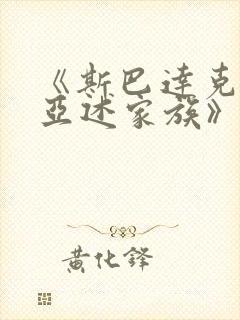 《斯巴达克
亚述家族》
黄化锋